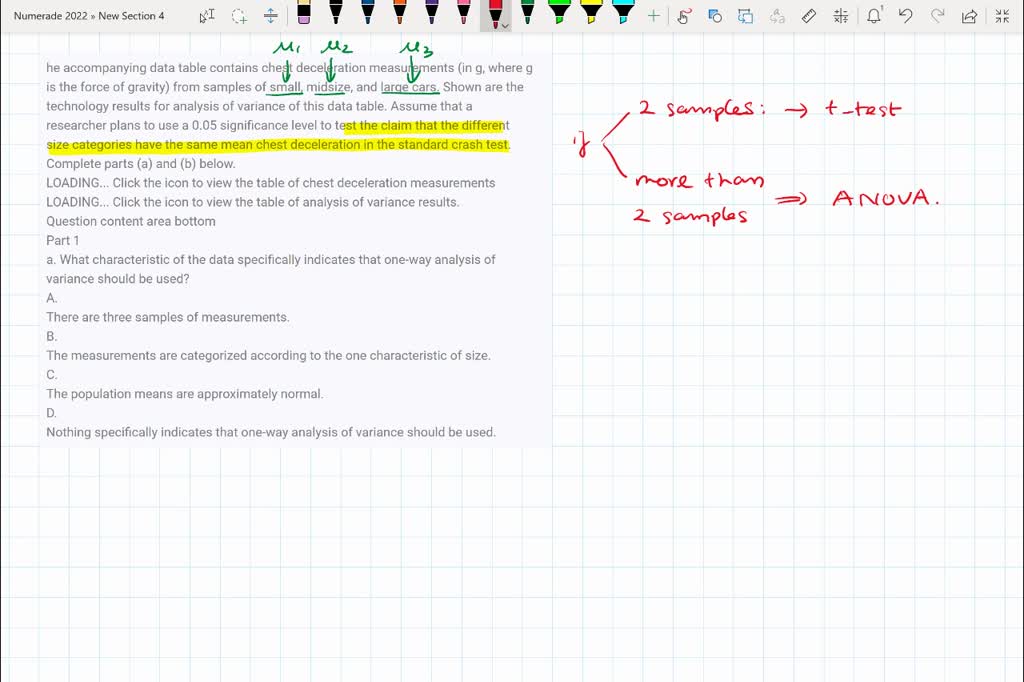 Numerade 2022 » New Section 4
μ1 μ2 μ3
he accompanying data table contains chest deceleration measurements (in g, where g
is the force of gravity) from samples of small, midsize, and large cars. Shown are the
technology results for analysis of variance of this data table. Assume that a
researcher plans to use a 0.05 significance level to test the claim that the different
size categories have the same mean chest deceleration in the standard crash test.
Complete parts (a) and (b) below.
LOADING... Click the icon to view the table of chest deceleration measurements
LOADING... Click the icon to view the table of analysis of variance results.
Question content area bottom
Part 1
a. What characteristic of the data specifically indicates that one-way analysis of
variance should be used?
A.
There are three samples of measurements.
B.
The measurements are categorized according to the one characteristic of size.
C.
The population means are approximately normal.
D.
Nothing specifically indicates that one-way analysis of variance should be used.
2 samples: → t-test
if
more than
2 samples ⇒ ANOVA.